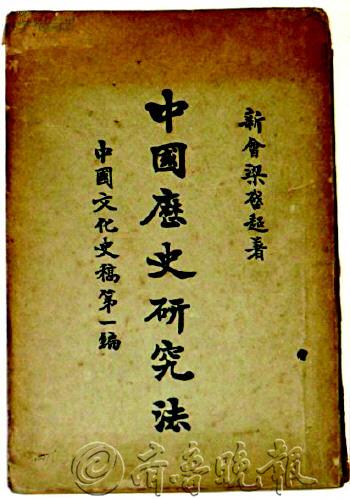 新會梁啓超著
中國歷史研究法
中國文化史稿第一編
©齊魯晚報